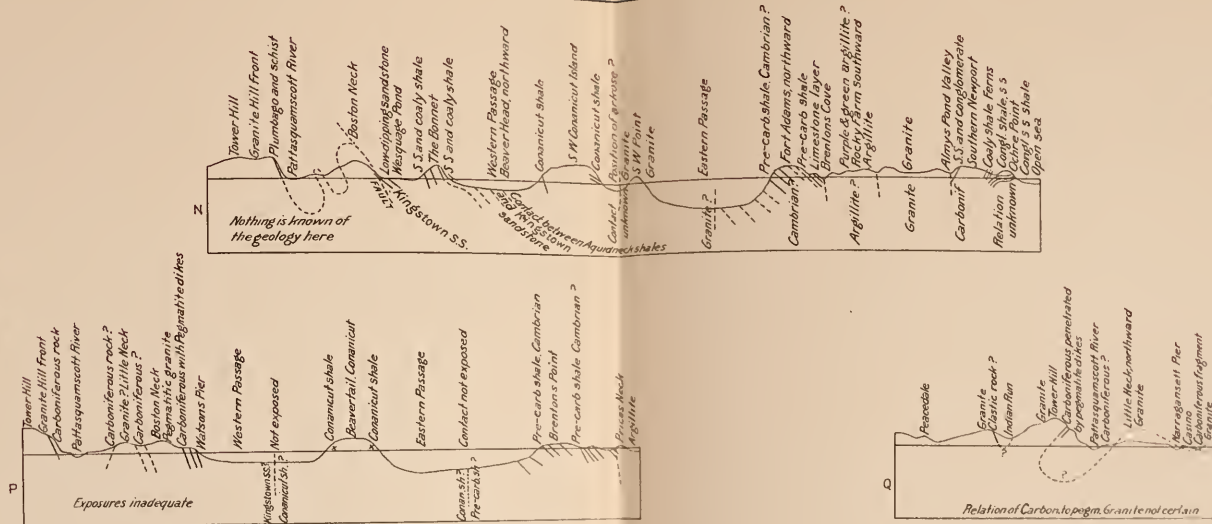 Tower Hill
Granite Hill Front
Plumbago and schist
Pattasquamscott River
Boston Neck
Low-dipping sandstone
Wesquage Pond
S.S. and coaly shale
The Bonnet
S.S. and coaly shale
Western Passage
Beaver Head, northward
Conanicut Shale
S.W. Conanicut Island
W. Conanicut shale
Position of arkose?
Granite
S W Point
Granite
Eastern Passage
Pre-carb shale, Cambrian?
Fort Adams, northward
Pre-carb Shale
Limestone layer
Brentons Cove
Purple & green argillite?
Rocky Farm Southward
Argillite
Granite
Almys Pond Valley
S.S. and conglomerate
Southern Newport
Coaly Shale Ferns
Congl shale, s s
Ochre Point
Congl s s shale
Open sea
N
Nothing is known of
the geology here
FAULT
Kingstown S.S.
Contact between Aquidneck shales
and Kingstown
sandstone
Contact
unknown
Granite?
Cambrian?
Argillite?
Granite
Carbonif
Relation
unknown
Tower Hill
Granite Hill Front
Carboniferous rock
Pattasquamscott River
Carboniferous rock?
Granite? Little Neck
Carboniferous?
Boston Neck
Pegmatitic granite
Carboniferous with Pegmatite dikes
Watsons Pier
Western Passage
Not exposed
Conanicut shale
Beavertail, Conanicut
Conanicut shale
Eastern Passage
Contact not exposed
Pre-carb shale, Cambrian
Brentons Point
Pre-carb shale Cambrian?
Prices Neck
Argillite
P
Exposures inadequate
Kingstown SS?
Conanicut sh.?
Conan. sh?
Pre-carb sh.
Peacedale
Granite
Clastic rock?
Indian Run
Granite
Tower Hill
Carboniferous penetrated
by pegmatite dikes
Pattasquamscott River
Carboniferous?
Little Neck, northward
Granite
Narragansett Pier
Casino
Carboniferous fragment
Granite
Q
?
?
Relation of Carbon. to pegm. Granite not certain